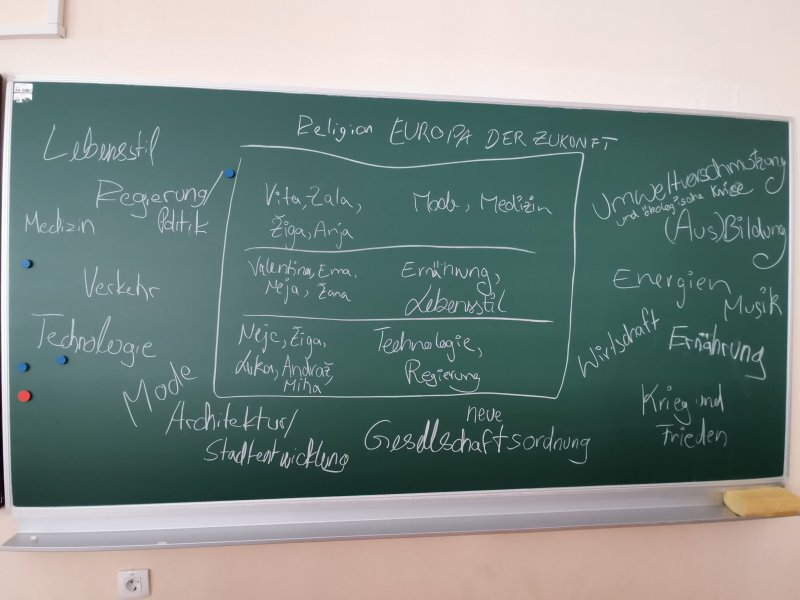 Religion EUROPA DER ZUKUNFT
Lebensstil
Regierung/
Politik
Medizin
Verkehr
Technologie
Mode
Architektur/
Stadtentwicklung
Vita, Zala,
Žiga, Anja
Mode, Medizin
Valentina, Ema,
Neja, Žana
Ernährung,
Lebensstil
Nejc, Žiga,
Luka, Andraž,
Miha
Technologie,
Regierung
neue
Gesellschaftsordnung
Umweltverschmutzung
und ökologische Krise
(Aus)Bildung
Energien
Musik
Wirtschaft
Ernährung
Krieg und
Frieden